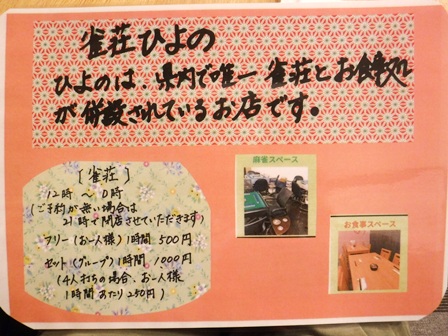 雀荘ひよの
ひよのは、県内で唯一 雀荘とお食事処
が併設されているお店です。
[雀荘]
12時～0時
(ご予約が無い場合は
21時で閉店させていただきます
フリー(お一人様)1時間 500円
セット(グループ)1時間 1000円
(4人打ちの場合、お一人様
1時間あたり250円)
麻雀スペース
お食事スペース